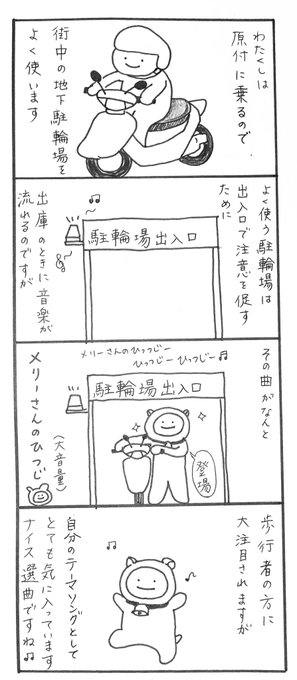 わたくしは
原付に乗るので
街中の地下駐輪場を
よく使います
よく使う駐輪場は
出入口で注意を促す
ために
駐輪場出入口
出庫のときに音楽が
流れるのですが
その曲がなんと
メリーさんのひっつじー
ひっつじー ひっつじー♫
駐輪場出入口
登場
メリーさんのひつじ
(大音量)
歩行者の方に
大注目されますが
自分のテーマソングとして
とても気に入っています
ナイス選曲ですね♫